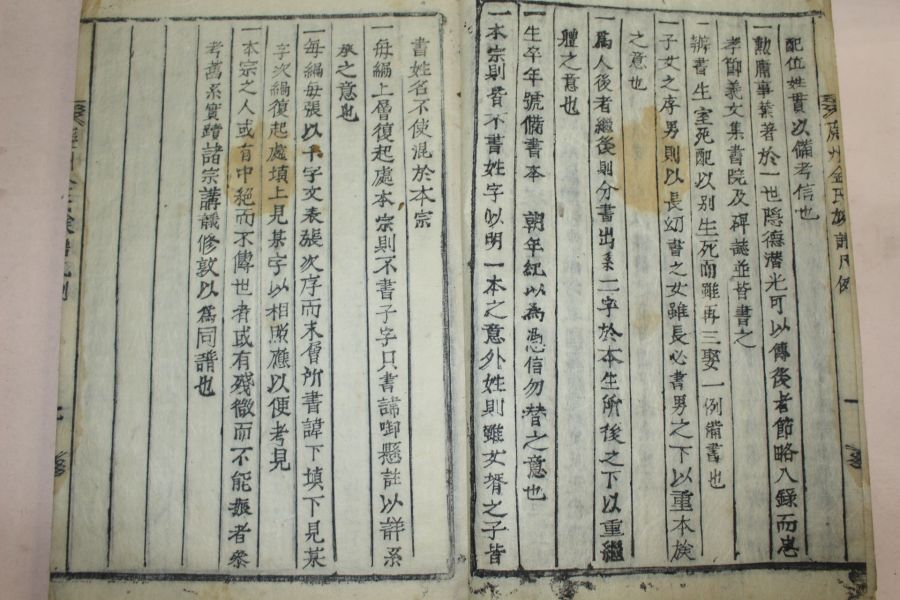 配位姓貫以備考信也
一勳庸事業著於一世隱德潛光可以傳後者節略入錄而忠
孝節義文集書院及碑誌並皆書之
一辨書生室死配以別生死而雖再三娶一例備書也
一子女之序男則以長幼書之女雖長必書男之下以重本族
之意也
一爲人後者繼後則分書出系二字於本生所後之下以重繼
體之意也
一生卒年號備書本 朝年紀以為憑信勿替之意也
一本宗則皆不書姓字以明一本之意外姓則雖女婿之子皆
書姓名不使混於本宗
一每編上層復起處本宗則不書子字只書諱啣懸註以詳系
承之意也
一每編每張以千字文表張次序而末層所書諱下填下見某
字次編復起處填上見某字以相照應以便考見
一本宗之人或有中絕而不傳世者或有殘微而不能振者叅
考舊系實蹟諸宗講議修敦以爲同譜也
州金氏族譜凡例
一
一